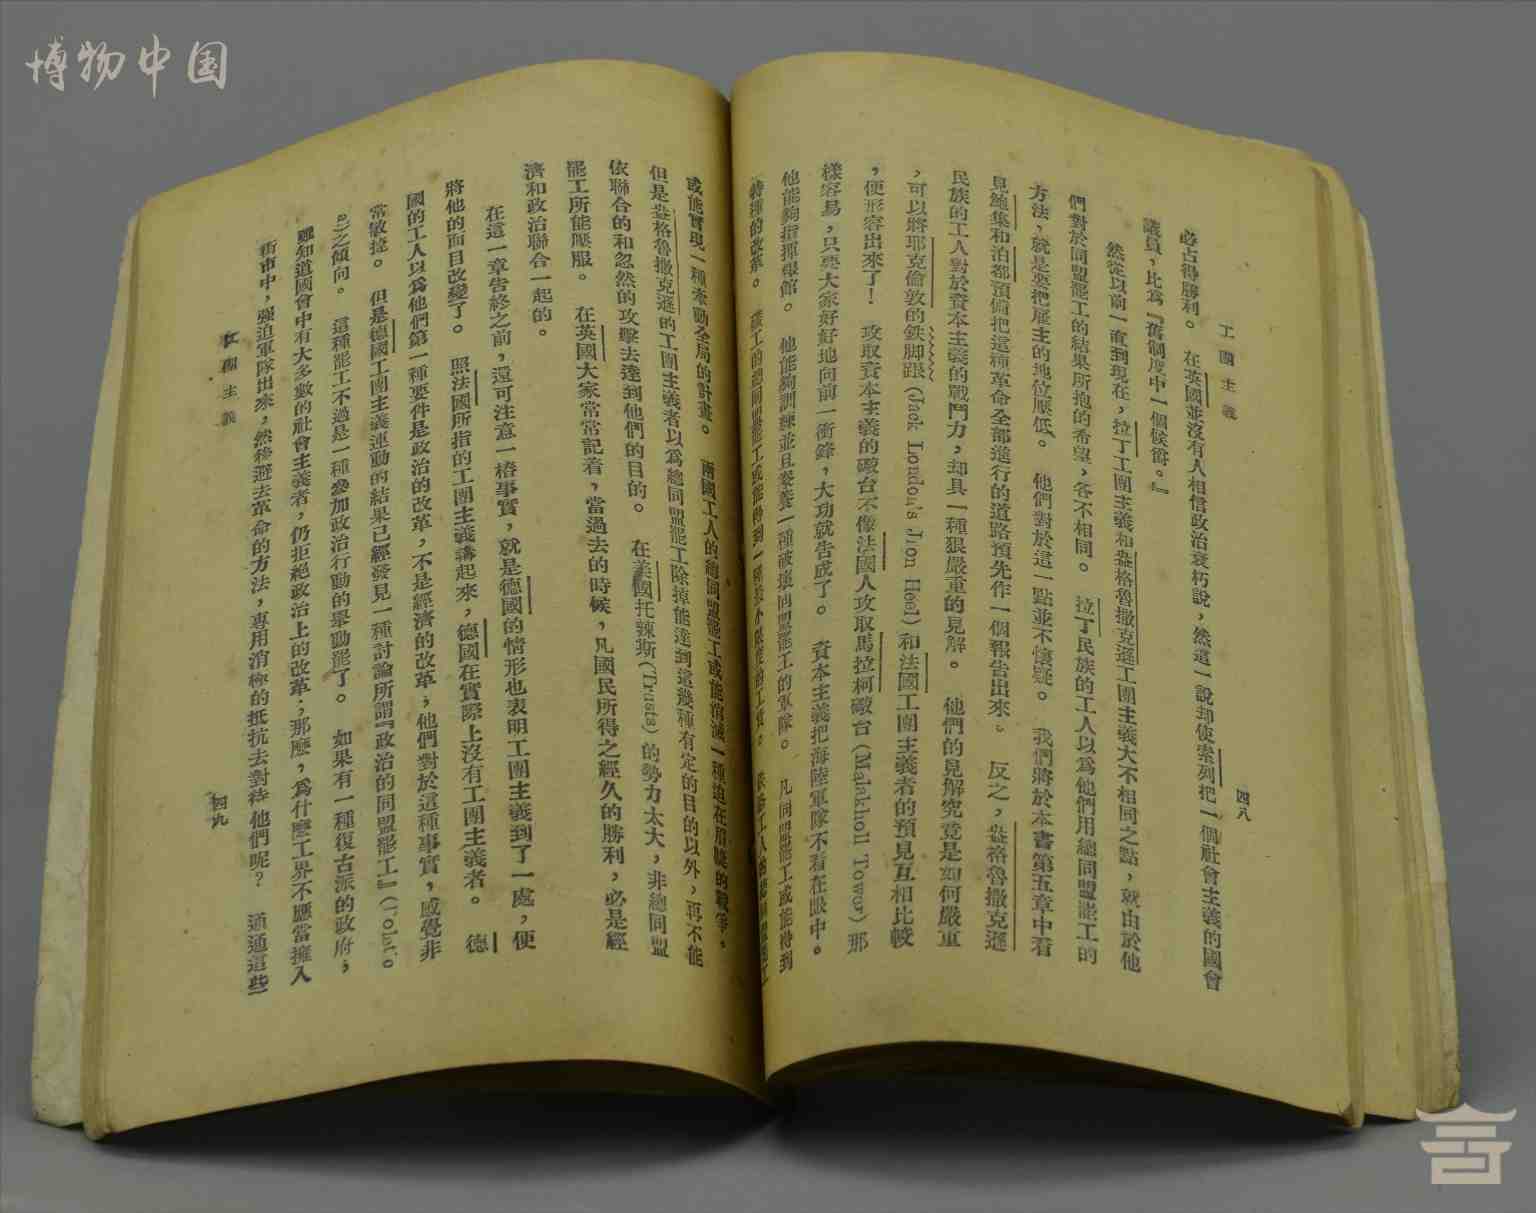 博物中国
工團主義
四八
必占得勝利。 在英國並沒有人相信政治衰朽說，然這一說却使索列把一個社會主義的國會
議員，比爲『舊制度中一個候爵。』
然從以前一直到現在，拉丁工團主義和盎格魯撒克遜工團主義大不相同之點，就由於他
們對於同盟罷工的結果所抱的希望，各不相同。 拉丁民族的工人以爲他們用總同盟罷工的
方法，就是要把雇主的地位壓低。 他們對於這一點並不懷疑。 我們將於本書第五章中看
見鮑集和泊都預備把這種革命全部進行的道路預先作一個報告出來。 反之，盎格魯撒克遜
民族的工人對於資本主義的戰鬥力，却具一種狠嚴重的見解。 他們的見解究竟是如何嚴重
，可以將耶克倫敦的鉄脚跟(Jack London's Iron Heel)和法國工團主義者的預見互相比較
，便形容出來了！ 攻取資本主義的礮台不像法國人攻取馬拉柯礮台(Malakhoff Tower)那
樣容易，只要大家好好地向前一衝鋒，大功就告成了。 資本主義把海陸軍隊不看在眼中。
他能夠指揮報館。 他能夠訓練並且豢養一種破壞同盟罷工的軍隊。 凡同盟罷工或能得到
特種的改革。 礦工的總同盟罷工或能得到一個最小限度的工資。
或能實現一種牽動全局的計畫。 兩國工人的總同盟罷工或能消滅一種迫在眉睫的戰爭。
但是盎格魯撒克遜的工團主義者以爲總同盟罷工除掉能達到這幾種有定的目的以外，再不能
依聯合的和忽然的攻擊去達到他們的目的。 在美國托辣斯(Trusts)的勢力太大，非總同盟
罷工所能壓服。 在英國大家常常記着，當過去的時候，凡國民所得之經久的勝利，必是經
濟和政治聯合一起的。
在這一章告終之前，還可注意一樁事實，就是德國的情形也表明工團主義到了一處，便
將他的面目改變了。 照法國所指的工團主義講起來，德國在實際上沒有工團主義者。 德
國的工人以爲他們第一種要件是政治的改革，不是經濟的改革，他們對於這種事實，感覺非
常敏捷。 但是德國工團主義運動的結果已經發見一種討論所謂『政治的同盟罷工』(Polstre
a)之傾向。 這種罷工不過是一種參加政治行動的舉動罷了。 如果有一種復古派的政府，
雖知道國會中有大多數的社會主義者，仍拒絕政治上的改革；那麼，爲什麼工界不應當擁入
街市中，強迫軍隊出來，然後避去革命的方法，專用消極的抵抗去對待他們呢？ 通通這些
工團主義
四九